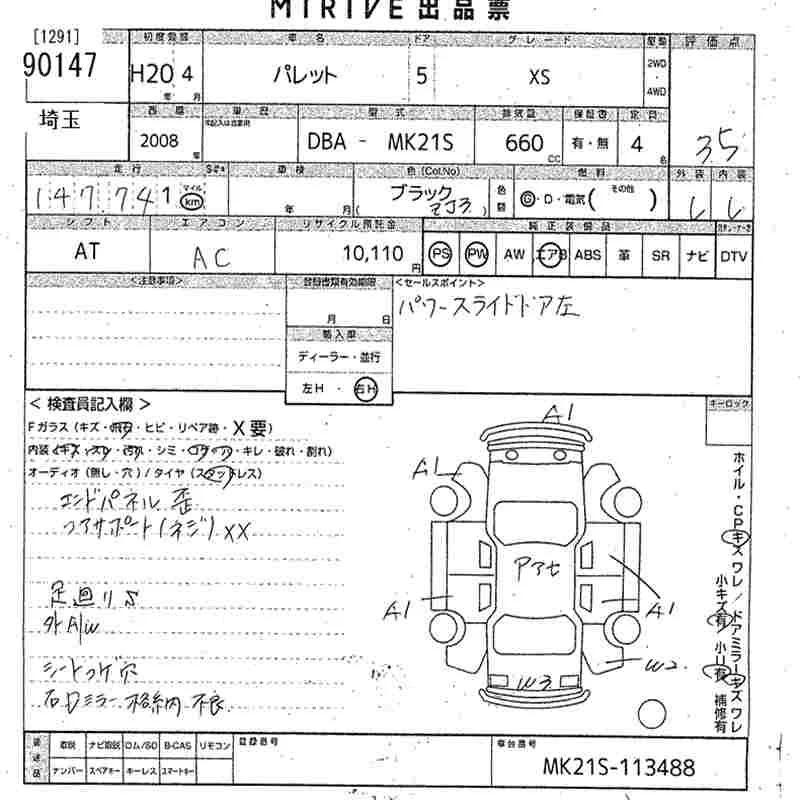 MIRIVE 出品票
[1291]
90147
初度登録
H20 年 4 月
車名
パレット
ドア
5
グレード
XS
駆動
2WD
・
4WD
評価点
3.5
埼玉
2008 年
車歴
型式
DBA - MK21S
排気量
660 CC
保証書
有・無
定員
4 名
走行
147,741
マイル
km
車検
年 月
色 (Col.No)
ブラック
( ZJ3 )
色替
燃料
G・D・電気( その他 )
外装
内装
シフト
AT
エアコン
AC
リサイクル預託金
10,110 円
純正装備品
PS PW AW エアB ABS 革 SR ナビ DTV
<注意事項>
登録書類有効期限
月 日
輸入車
ディーラー・並行
左H ・ 右H
<セールスポイント>
パワースライドドア左
キーロック
< 検査員記入欄 >
Fガラス (キズ・飛石・ヒビ・リペア跡・X要)
内装 (キズ・スレ・汚れ・シミ・コゲ・穴・キレ・破れ・割れ)
オーディオ (無し・穴) / タイヤ (スタッドレス)
エンドパネル 歪
コアサポート(ネジ)XX
足廻りS
外A/W
シートコゲ穴
右Dミラー 格納 不良
A1
A1
Pアセ
A1
A1
W2
W3
ホイル・CPキズ ワレ / ドアミラーキズ ワレ
小キズ有 / 小U有 補修有
装送品
取説 ナビ取説 ROM/SD B-CAS リモコン
ナンバー スペアキー キーレス スマートキー
登録番号
車台番号
MK21S-113488